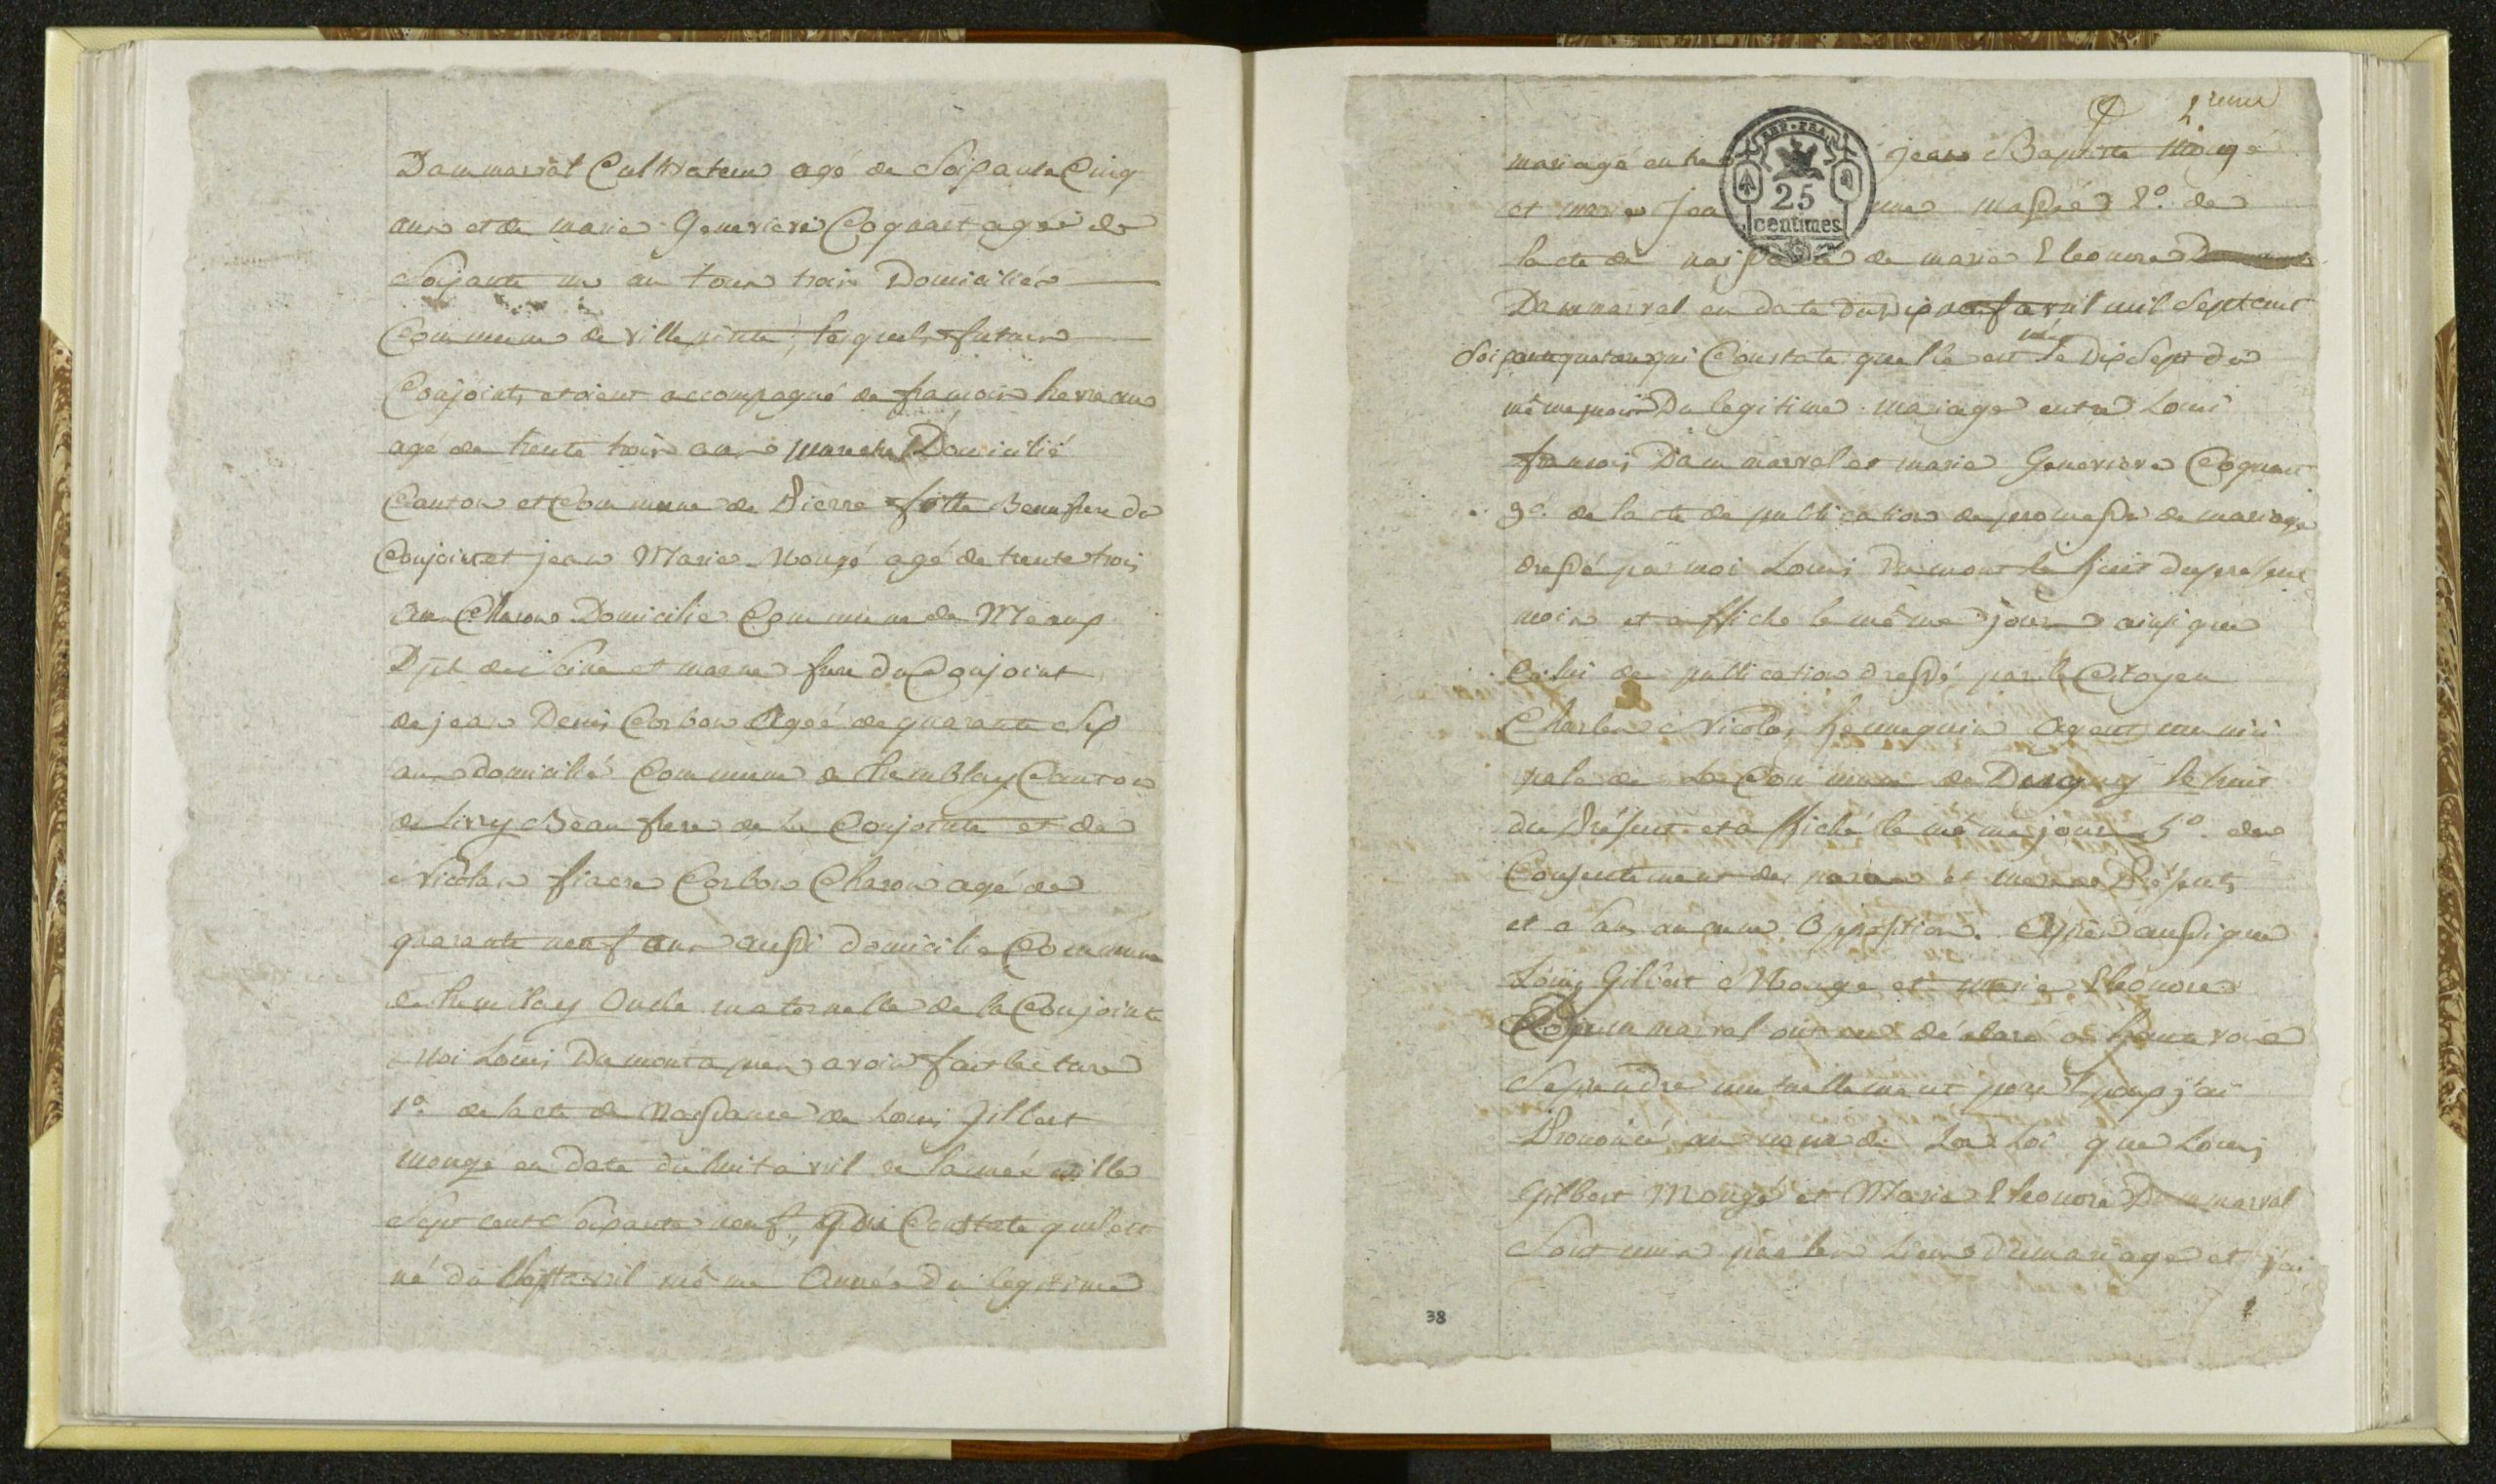 Dammarval Cultivateur agé de Soixante Cinq
ans et de marie Genevieve Coquart agée de
Soixante un an tous trois Domiciliés
Commune de Villepinte, lesquels futurs
Conjoints etoient accompagné de francois
agé de trente trois ans marchal Domicilié
Canton et Commune de Pierre fitte Beaufrere du
Conjoint et jean Marie Mongé agé de trente trois
ans Charon Domicilie Commune de Meaux
Dpt de Seine et marne frere du Conjoint
de jean Denis Corbon Ageé de quarante Sep
ans domicilié Commune de tremblay Canton
de Livry Beau frere de la Conjointe et de
Nicolas fiacre Corbon Charon agé de
quarante neuf ans aussi domicilie Commune
de tremblay Oncle maternelle de la Conjointe
Moi Louis Dumont apres avoir fait lecture
1° de lacte de Nassance de Louis Gilbert
mongé en date du huit avril de lannée mille
Sept cent Soixante neuf, Qui Constate quil est
né du Sept avril même Année du legitime
2 eme
mariage entre jean Baptiste Mongé
et marie massé 2° de
lacte de naissance de marie Eleonore
Dammarval en date du dix neuf avril mil Sept cent
Soixante quatorze qui Constate quelle est née le Dix Sept du
même mois Du legitime mariage entre Louis
francois Dammarval et marie Genevieve Coquart
3° de lacte de publication de promesse de mariage
dressé par moi Louis Dumont le huit du present
mois et affiche le même jour ainsi que
Celui de publication dressé par le Citoyen
Charles Nicolas hennequin Agent munici
pale de la Commune de Dugny le huit
du Présent et affiché le même jour 5° des
Consentement des peres et meres Présents
et Sans aucune Opposition. Après aussi que
Louis Gilbert Monge et marie Eleonore
Dammarval ont eu déclaré a haute voix
Se prendre mutuellement pour Epoux j'ai
Prononcé au nom de La Loi que Louis
Gilbert Mongé et Marie Eleonore Dammarval
Sont unis par les Liens du mariage et j'ai
38
25
centimes